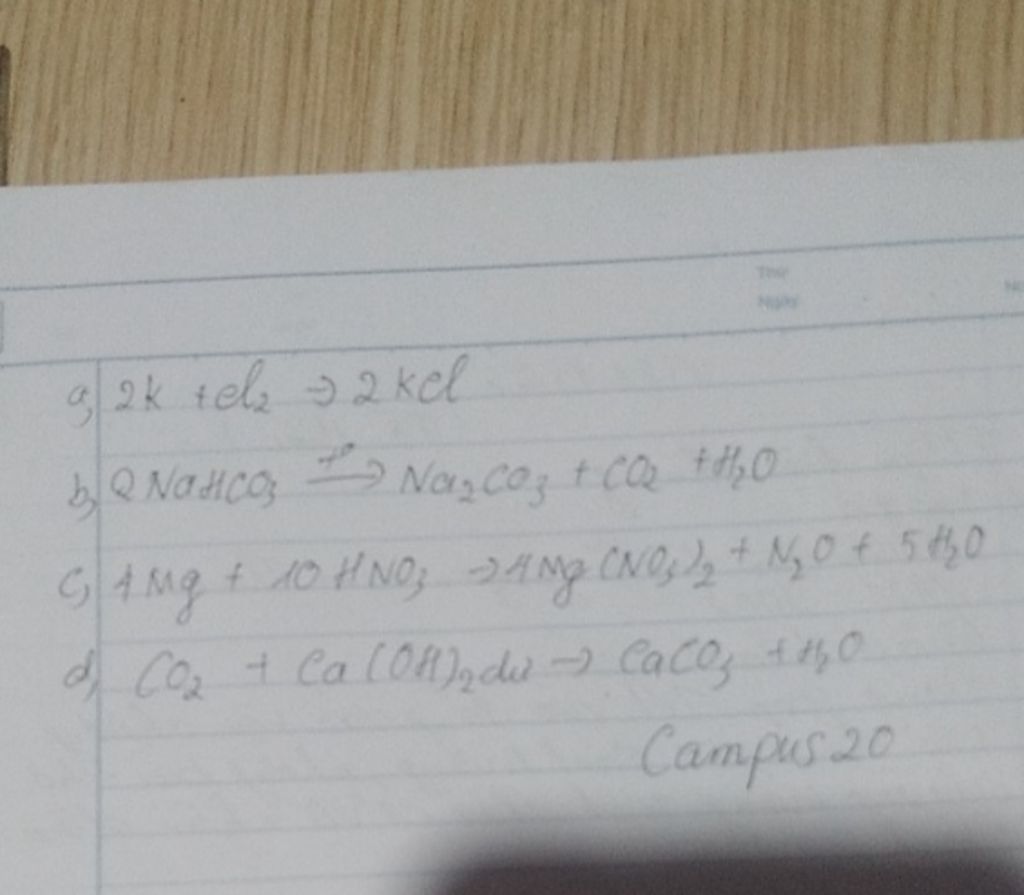 Thứ
Ngày
No
a, 2K + Cl₂ → 2KCl
b, 2NaHCO₃ –t°→ Na₂CO₃ + CO₂ + H₂O
c, 4Mg + 10HNO₃ → 4Mg(NO₃)₂ + N₂O + 5H₂O
d, CO₂ + Ca(OH)₂ dư → CaCO₃ + H₂O
Campus 20